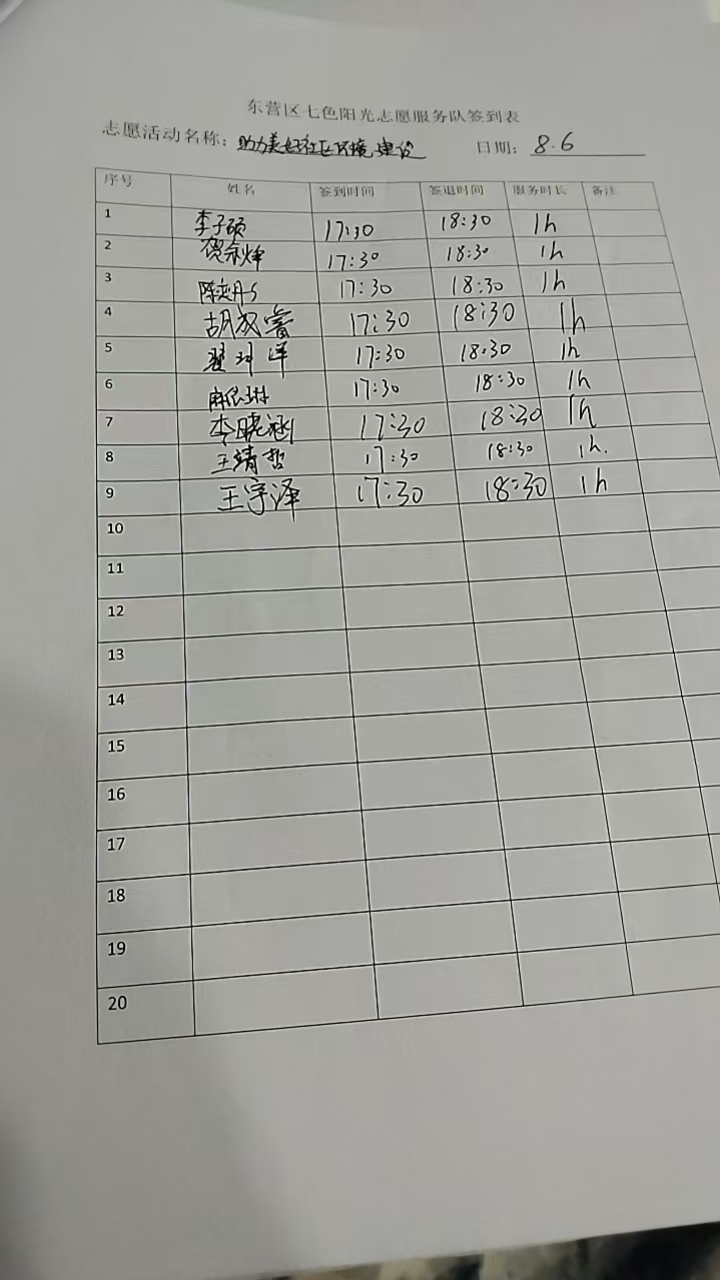 东营区七色阳光志愿服务队签到表
志愿活动名称：助力美好社区环境建设 日期：8.6
序号 姓名 签到时间 签退时间 服务时长 备注
1 李子硕 17:30 18:30 1h
2 17:30 18:30 1h
3 17:30 18:30 1h
4 胡成睿 17:30 18:30 1h
5 17:30 18:30 1h
6 17:30 18:30 1h
7 李晓涵 17:30 18:30 1h
8 王靖哲 17:30 18:30 1h.
9 王宇泽 17:30 18:30 1h
10
11
12
13
14
15
16
17
18
19
20